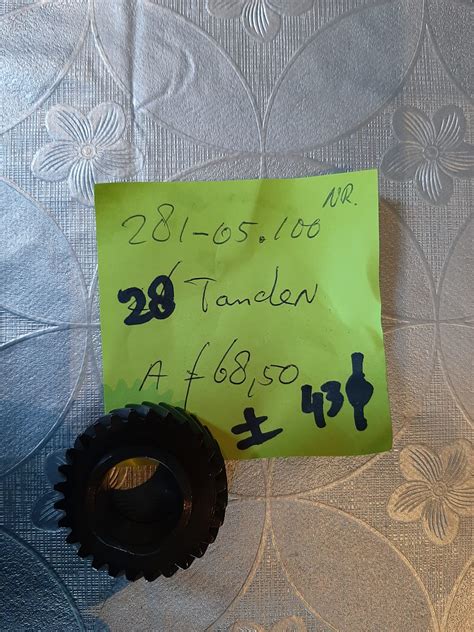 NR.
281-05.100
28 Tanden
A ƒ68,50
± 43